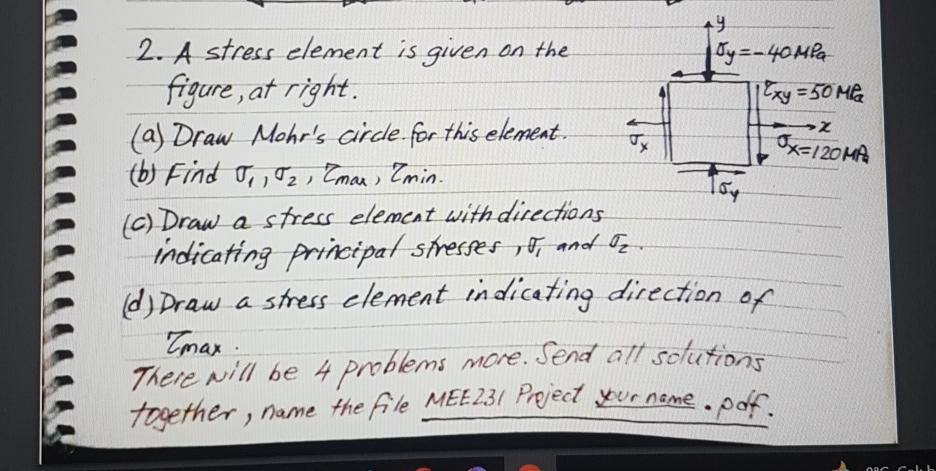 2. A stress element is given on the
figure, at right.
(a) Draw Mohr's circle for this element.
(b) Find σ₁, σ₂, τmax, τmin.
(c) Draw a stress element with directions
indicating principal stresses, σ₁ and σ₂.
(d) Draw a stress element indicating direction of
τmax.
There will be 4 problems more. Send all solutions
together, name the file MEE231 Project your name.pdf.
y
σy=-40MPa
τxy=50MPa
x
σx=120MPa
σx
σy